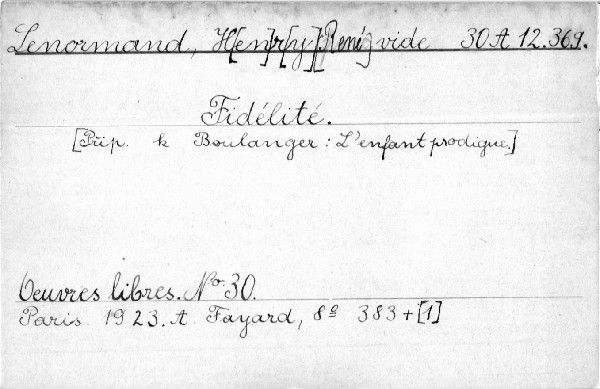 Lenormand, H[en]r[y] [René] vide 30 A 12.369.
Fidélité.
[Přip. k Boulanger: L'enfant prodigue.]
Oeuvres libres. No 30.
Paris 1923. A. Fayard, 8º 383+[1]